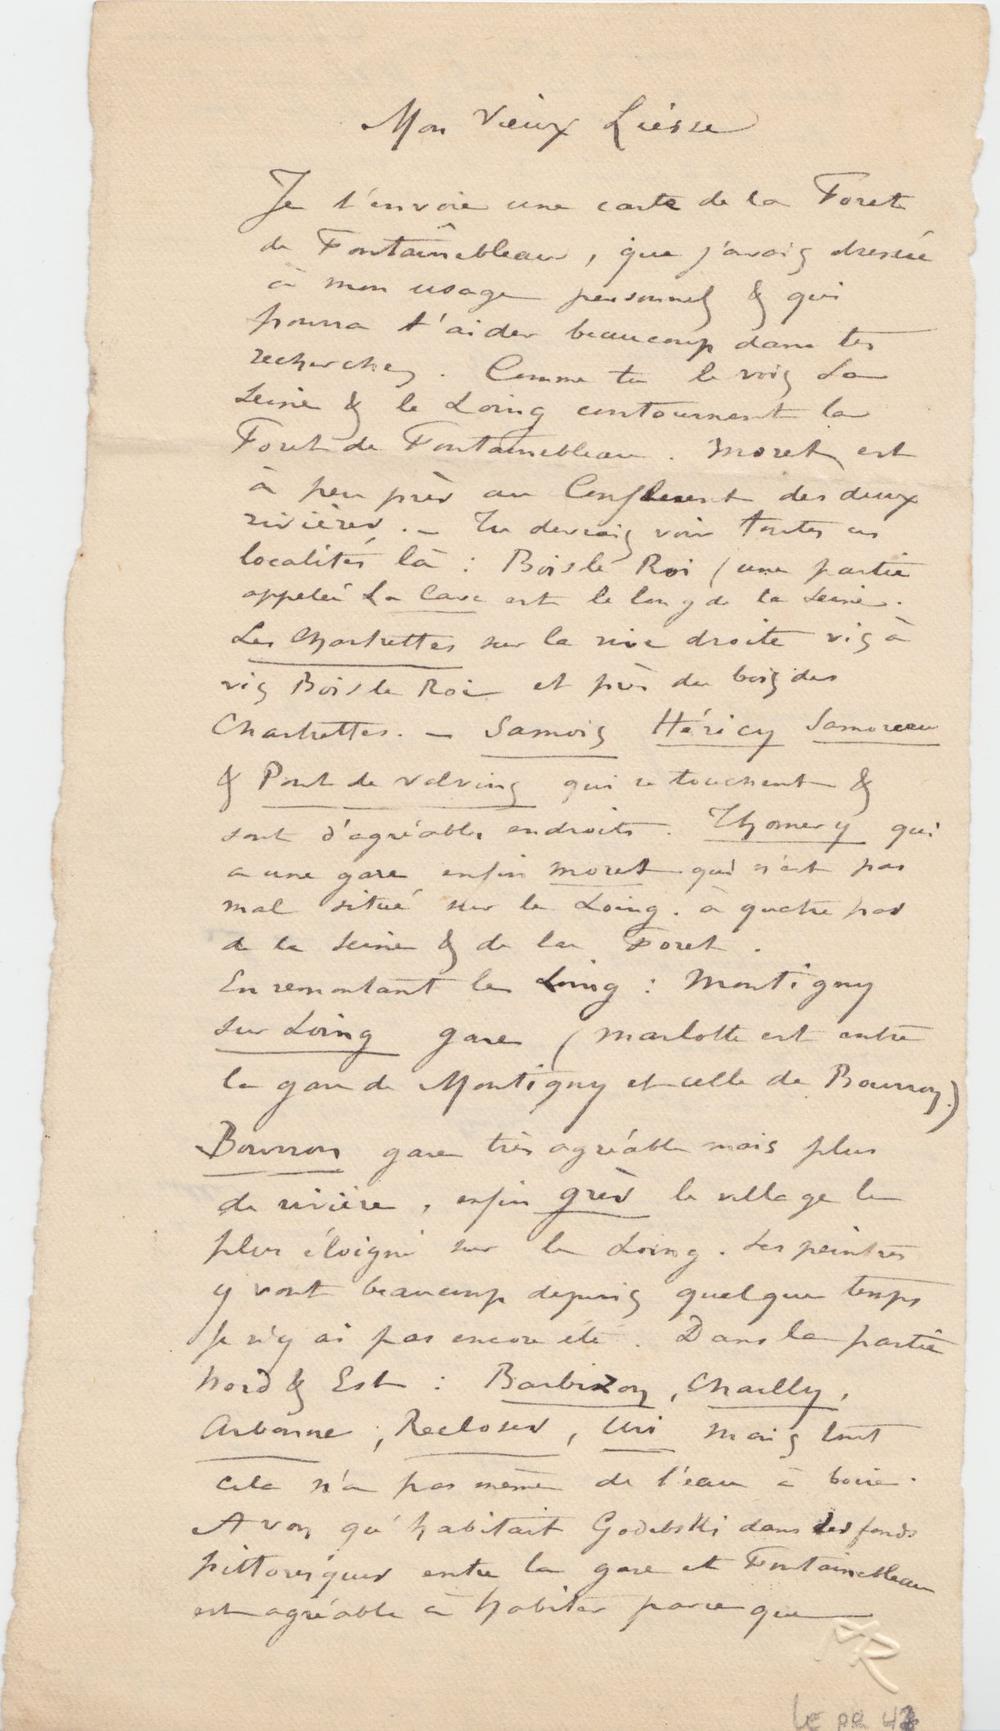 Mon Vieux Liesse
Je t'envoie une carte de la Foret
de Fontaînebleau, que j'avais dressée
à mon usage personnel & qui
pourra t'aider beaucoup dans tes
recherches. Comme tu le vois La
Seine & le Loing contournent la
Foret de Fontainebleau. Moret est
à peu près au Confluent des deux
rivières. — Tu devrais voir toutes ces
localités là : Bois le Roi (une partie
appelée La Cave est le long de la Seine.
Les Chartrettes sur la rive droite vis à
vis Bois le Roi et près du bois des
Chartrettes. — Samois Héricy Samoreau
& Pont de Valvins qui se touchent &
sont d'agréables endroits. Thomery qui
a une gare enfin Moret qui n'est pas
mal situé sur le Loing. à quatre pas
de la Seine & de la Foret.
En remontant le Loing : Montigny
sur Loing gare (Marlotte est entre
la gare de Montigny et celle de Bourron.)
Bourron gare très agréable mais plus
de rivière, enfin grès le village le
plus éloigné sur le Loing. Les peintres
y vont beaucoup depuis quelque temps
Je n'y ai pas encore été. Dans la partie
Nord & Est : Barbizon, Chailly,
Arbonne, Recloses, Uri mais tout
cela n'a pas même de l'eau à boire.
Avon qu'habitait Godebski dans les fonds
pittoresques entre la gare et Fontainebleau
est agréable à habiter parce que
AR
LE PR 43